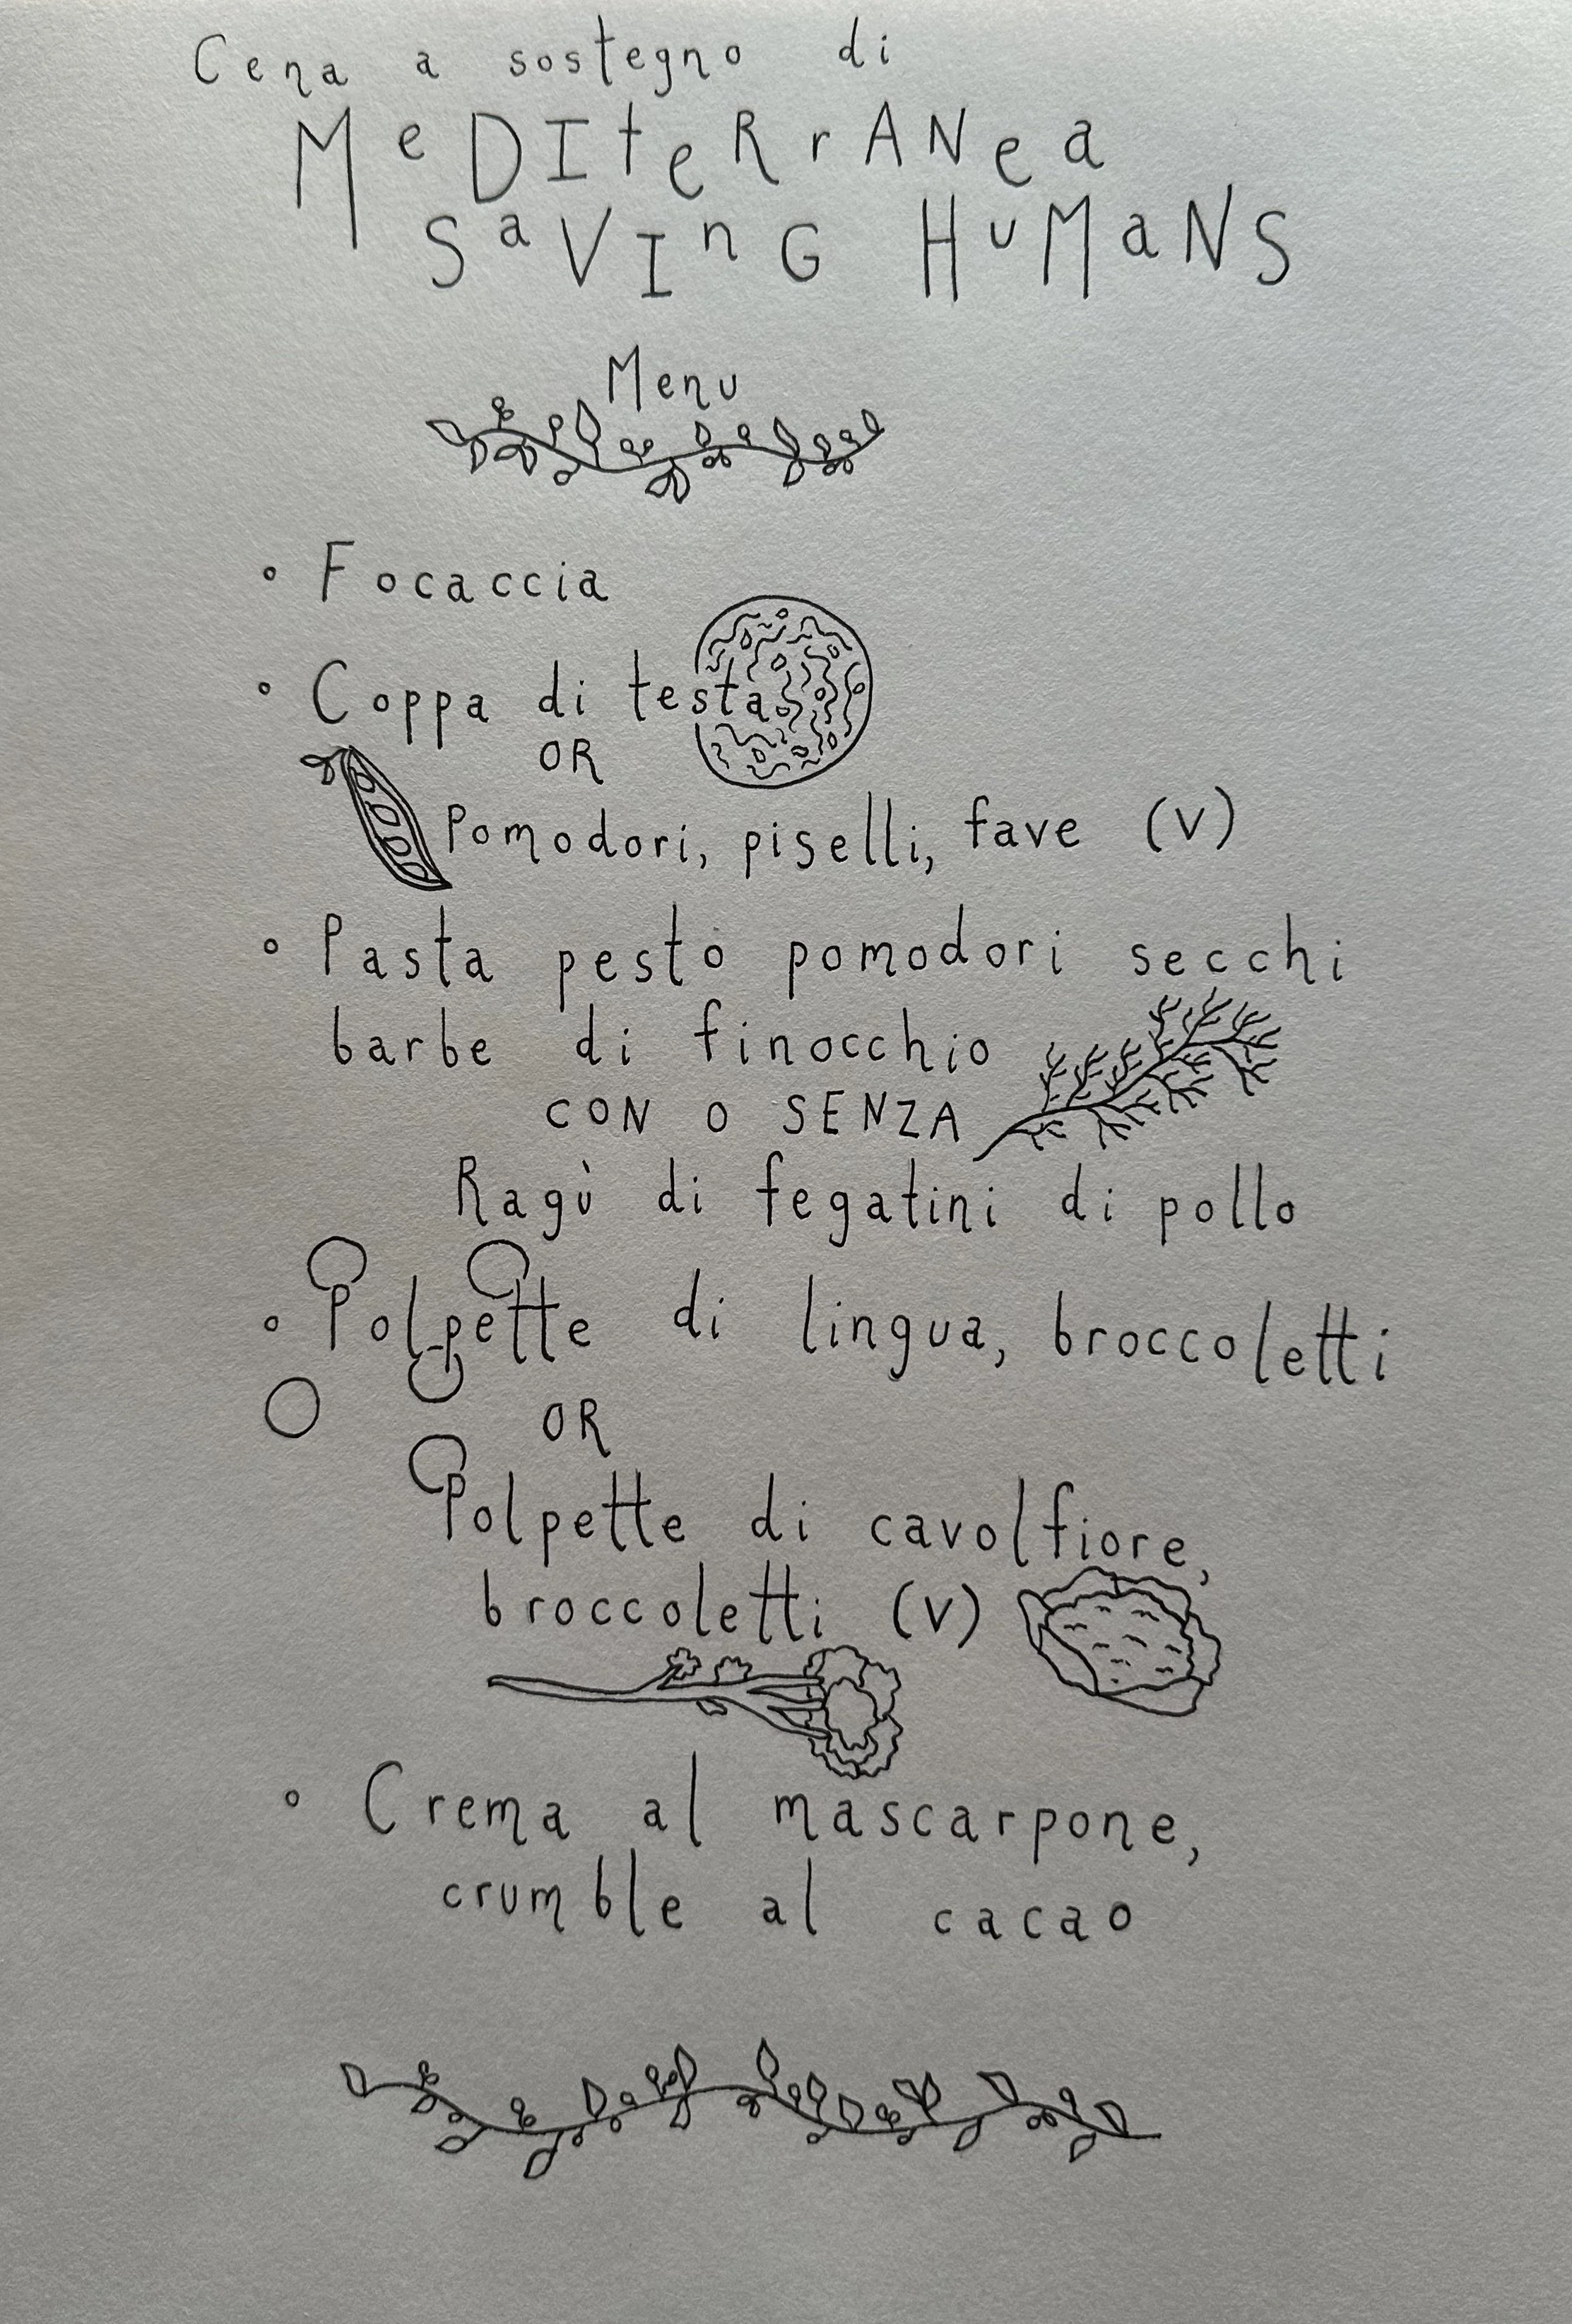 Cena a sostegno di
MeDIteRrANea
SaVInG HuMaNS
Menu
• Focaccia
• Coppa di testa
OR
Pomodori, piselli, fave (V)
• Pasta pesto pomodori secchi
barbe di finocchio
CON O SENZA
Ragù di fegatini di pollo
• Polpette di lingua, broccoletti
OR
Polpette di cavolfiore,
broccoletti (V)
• Crema al mascarpone,
crumble al cacao